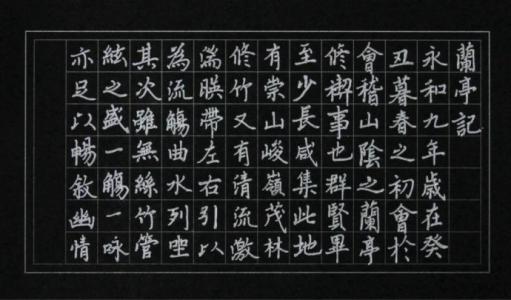 蘭亭記
永和九年歲在癸
丑暮春之初會於
會稽山陰之蘭亭
修禊事也群賢畢
至少長咸集此地
有崇山峻嶺茂林
修竹又有清流激
湍暎帶左右引以
為流觴曲水列坐
其次雖無絲竹管
絃之盛一觴一咏
亦足以暢敘幽情